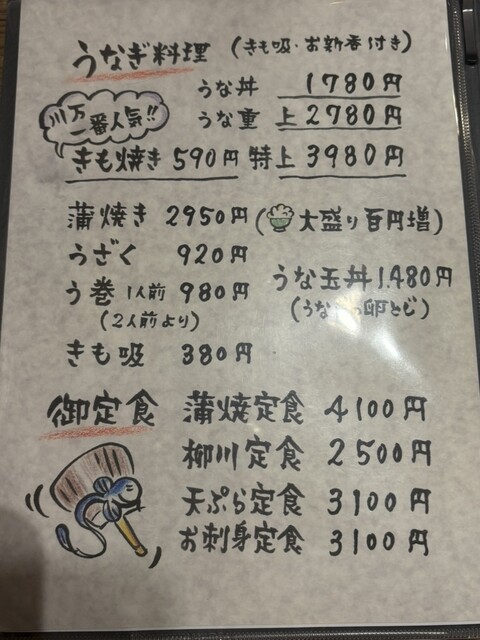 うなぎ料理 (きも吸・お新香付き)
うな丼 1780円
うな重 上 2780円
川万一番人気!!
きも焼き 590円 特上 3980円
蒲焼き 2950円 (大盛り百円増)
うざく 920円
うな玉丼 1,480円
(うなぎの卵とじ)
う巻 1人前 980円
(2人前より)
きも吸 380円
御定食 蒲焼定食 4100円
柳川定食 2500円
天ぷら定食 3100円
お刺身定食 3100円